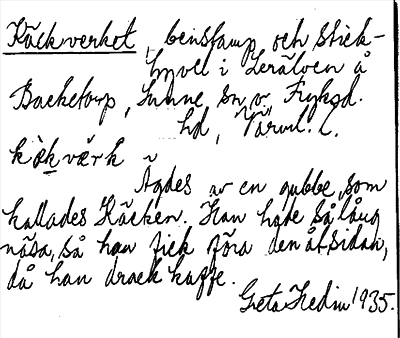 Käckverket, benstamp och stick-
hyvel i Lerälven å
Backetorp, Sunne sn, v. Fryksd.
hd, Värml. l.
kækværk
Ägdes av en gubbe, som
kallades Käcken. Han hade så lång
näsa, så han fick föra den åt sidan,
då han drack kaffe.
Greta Hedin 1935.